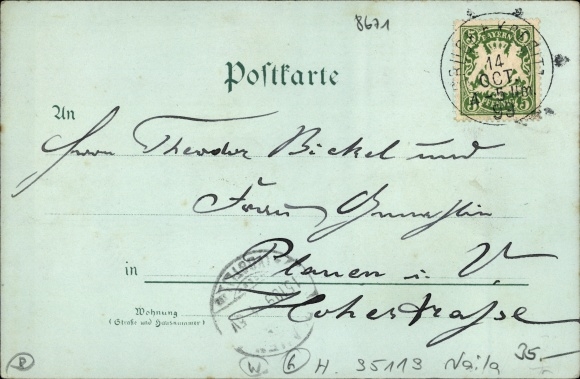 8671
5 BAYERN 5
14
OCT
99
5 PFENNIG 5
Postkarte
An
Herrn Theodor Bickel und
Frau
in Plauen i. V.
Wohnung
(Straße und Hausnummer)
Hohestraße
R W 6 H. 95119 Naila 35.—